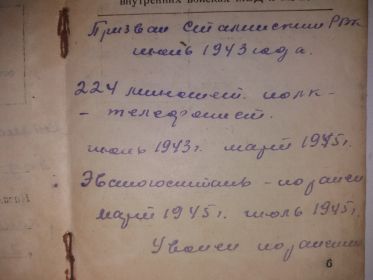 внутренних войсках МВД
Призван Сталинским РВК
июль 1943 года.
224 миномет. полк
- телефонист.
июль 1943 г. март 1945 г.
Эвакогоспиталь - по ранен
март 1945 г. июль 1945 г.
Уволен по ранению
6